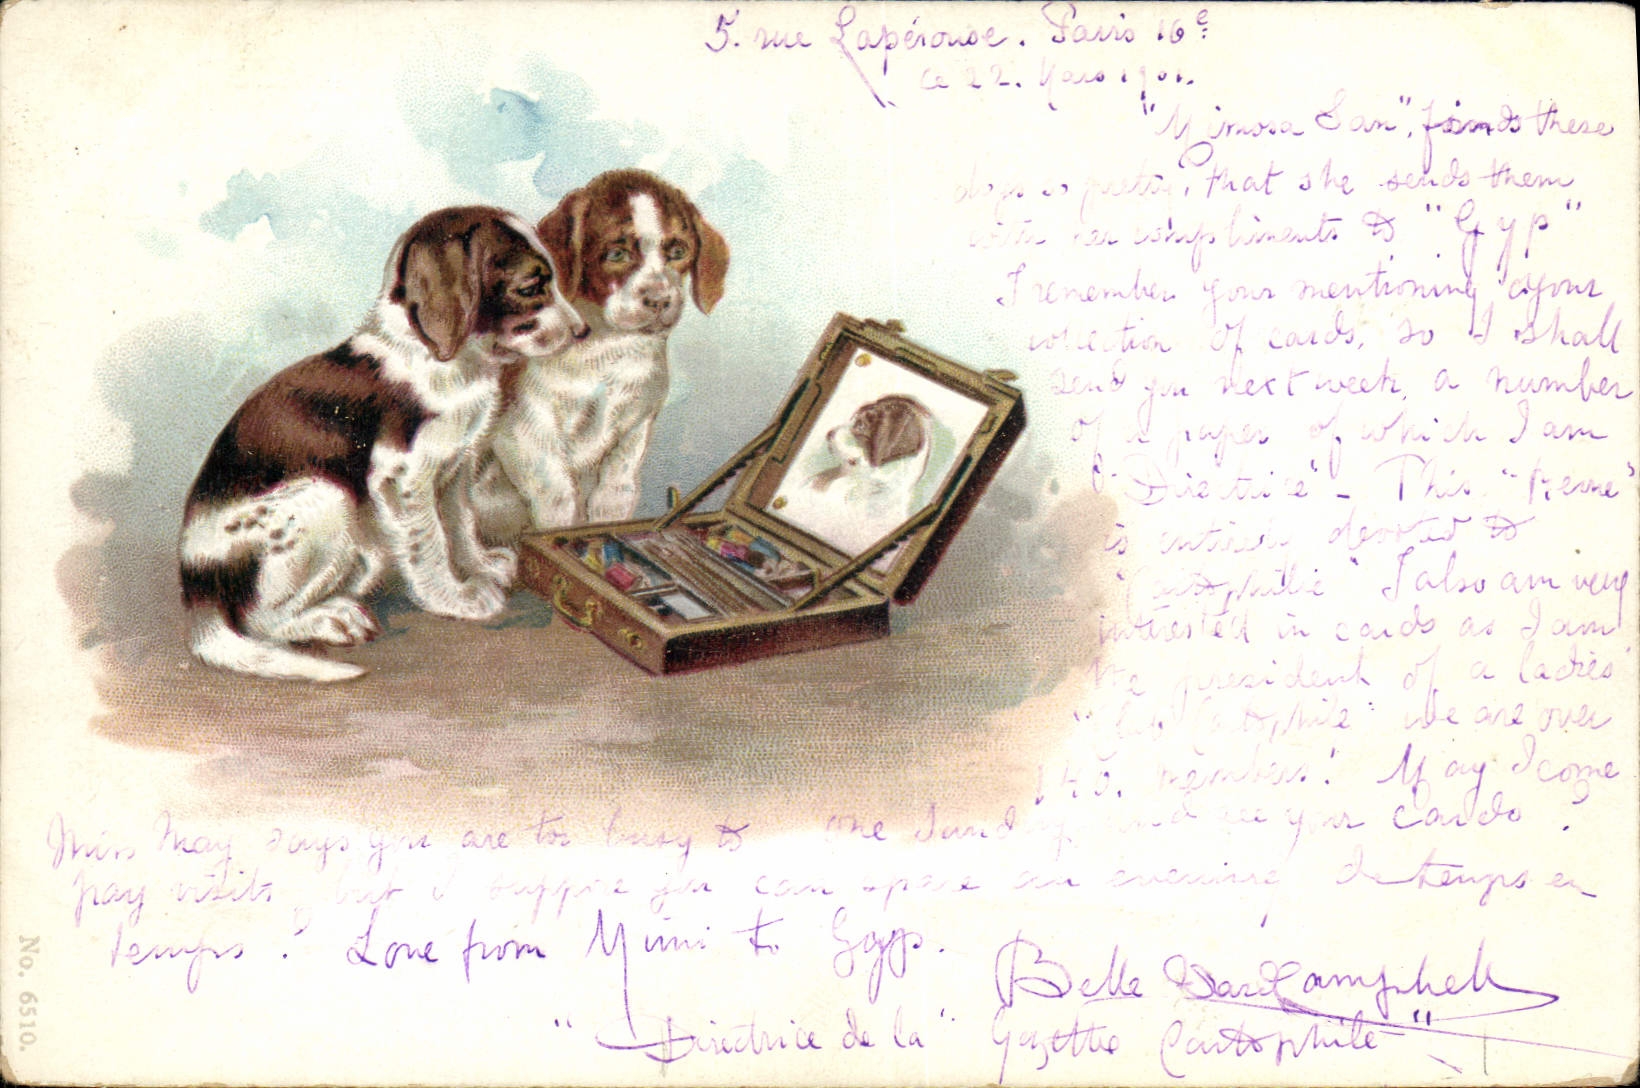 5. rue Lapérouse. Paris 16e
ce 22. Mars 1901.
"Mimosa San", finds these
dogs so pretty, that she sends them
with her compliments to "Gyp"
I remember your mentioning your
collection of cards, so I shall
send you next week, a number
of a paper of which I am
"Directrice" - This "Revue"
is entirely devoted to
"Cartophilie" I also am very
interested in cards as I am
the president of a ladies'
"Club Cartophile" we are over
140. members! May I come
one Sunday and see your cards?
Miss May says you are too busy to
pay visits, but I suppose you can spare an evening de temps en
temps! Love from Mimi to Gyp.
Belle Campbell
"Directrice de la" Gazette Cartophile"
No. 6510.